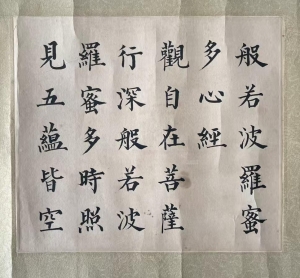 般若波羅蜜
多心經
觀自在菩薩
行深般若波
羅蜜多時照
見五蘊皆空